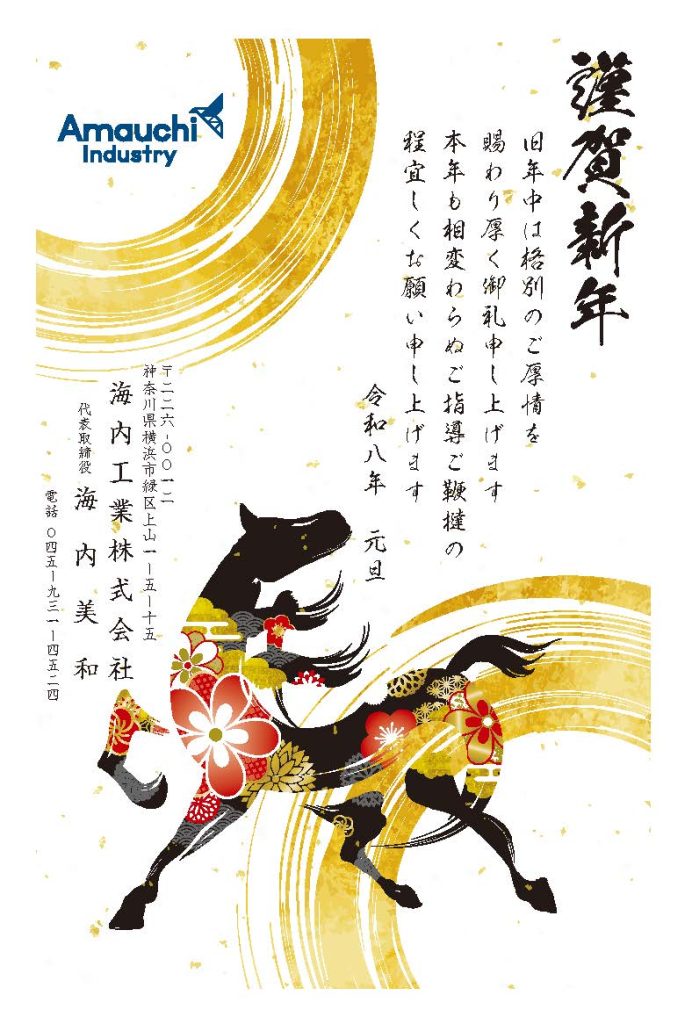 謹賀新年
旧年中は格別のご厚情を
賜わり厚く御礼申し上げます
本年も相変わらぬご指導ご鞭撻の
程宜しくお願い申し上げます
令和八年　元旦
〒二二六-〇〇一二
神奈川県横浜市緑区上山一ー五ー十五
海内工業株式会社
代表取締役　海内美和
電話 〇四五ー九三一ー四五二四
Amauchi
Industry